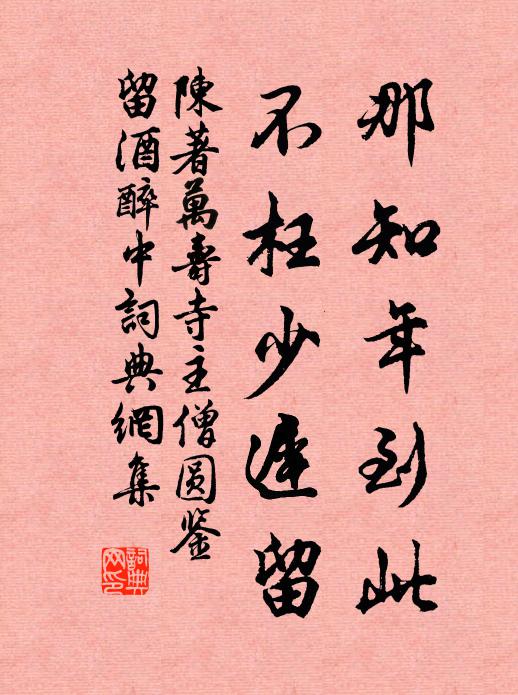 那知年到此
不枉少遲留
陳著萬壽寺主僧圓鉴
留酒醉中詞典網集
詞典网印